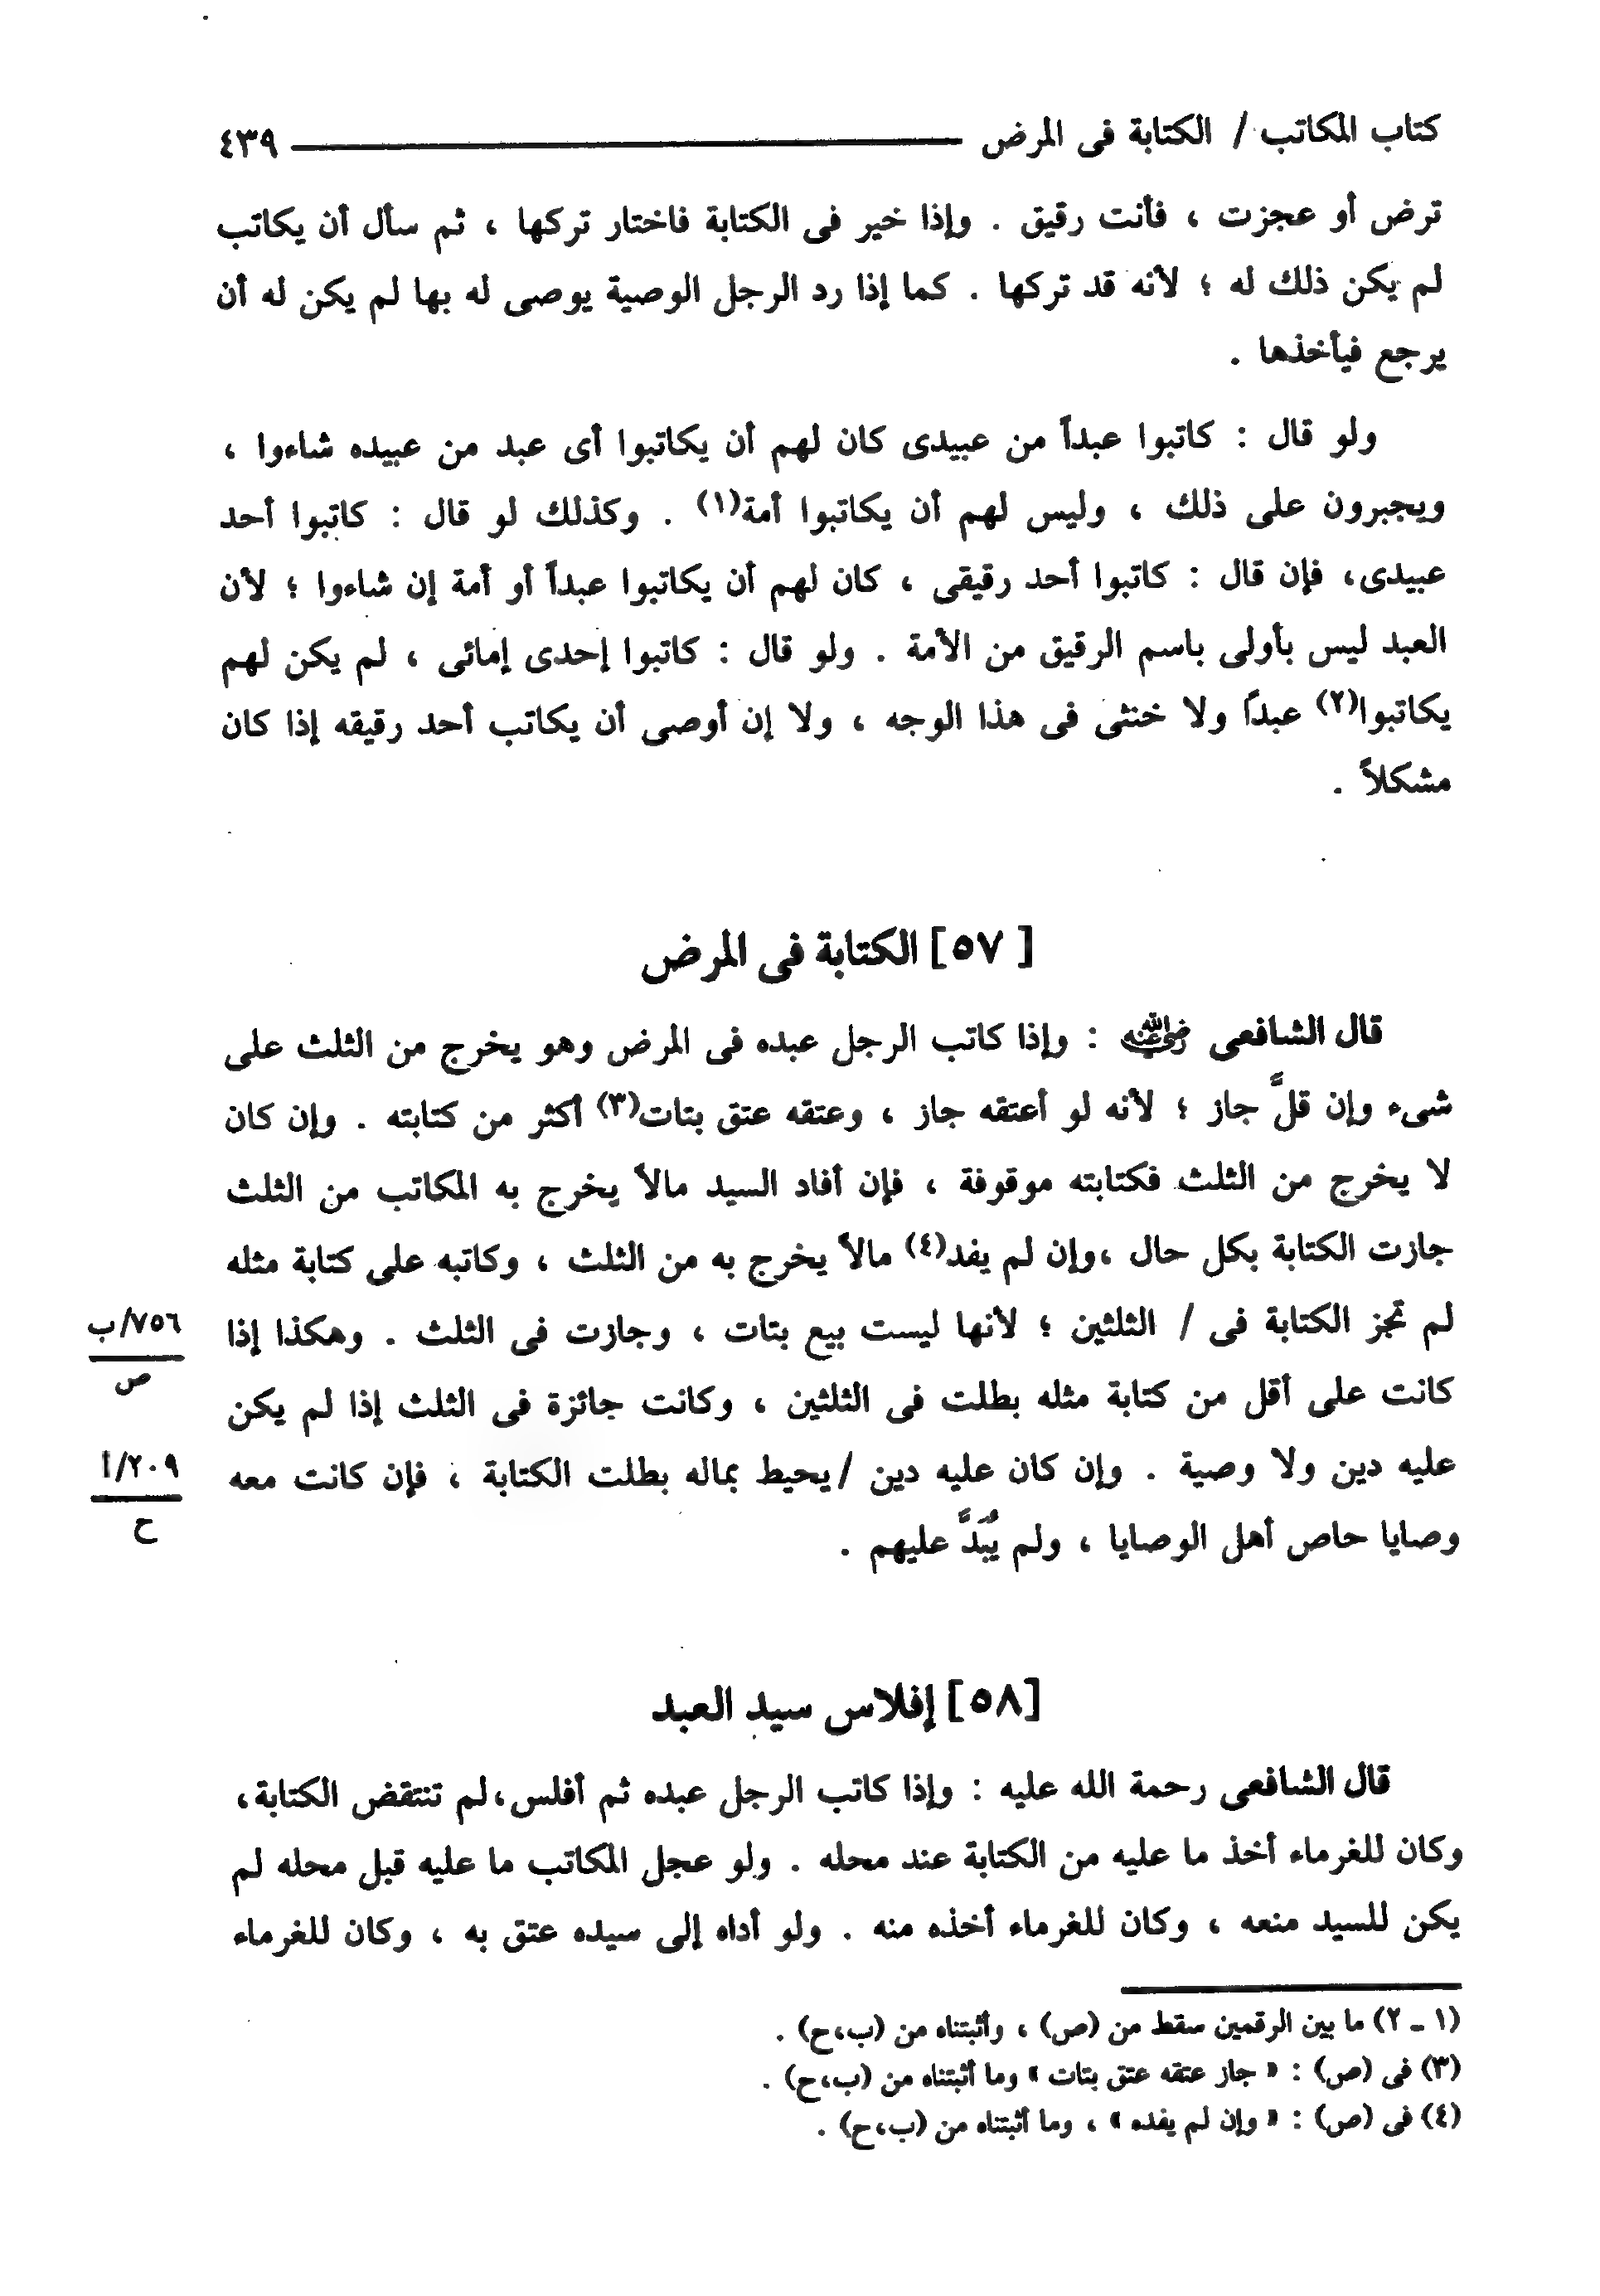 كتاب المكاتب / الكتابة فى المرض ٤٣٩
ترض أو عجزت ، فأنت رقيق . وإذا خير فى الكتابة فاختار تركها ، ثم سأل أن يكاتب
لم يكن ذلك له ؛ لأنه قد تركها . كما إذا رد الرجل الوصية يوصى له بها لم يكن له أن
يرجع فيأخذها .
ولو قال : كاتبوا عبداً من عبيدى كان لهم أن يكاتبوا أى عبد من عبيده شاءوا ،
ويجبرون على ذلك ، وليس لهم أن يكاتبوا أمة(١) . وكذلك لو قال : كاتبوا أحد
عبيدى، فإن قال : كاتبوا أحد رقيقى ، كان لهم أن يكاتبوا عبداً أو أمة إن شاءوا ؛ لأن
العبد ليس بأولى باسم الرقيق من الأمة . ولو قال : كاتبوا إحدى إمائى ، لم يكن لهم
يكاتبوا(٢) عبداً ولا خنثى فى هذا الوجه ، ولا إن أوصى أن يكاتب أحد رقيقه إذا كان
مشكلاً .
[ ٥٧ ] الكتابة فى المرض
قال الشافعى رضي الله عنه : وإذا كاتب الرجل عبده فى المرض وهو يخرج من الثلث على
شىء وإن قلَّ جاز ؛ لأنه لو أعتقه جاز ، وعتقه عتق بتات(٣) أكثر من كتابته . وإن كان
لا يخرج من الثلث فكتابته موقوفة ، فإن أفاد السيد مالاً يخرج به المكاتب من الثلث
جازت الكتابة بكل حال ،وإن لم يفد(٤) مالاً يخرج به من الثلث ، وكاتبه على كتابة مثله
لم تجز الكتابة فى / الثلثين ؛ لأنها ليست بيع بتات ، وجازت فى الثلث . وهكذا إذا
٧٥٦/ب
ص
كانت على أقل من كتابة مثله بطلت فى الثلثين ، وكانت جائزة فى الثلث إذا لم يكن
عليه دين ولا وصية . وإن كان عليه دين /يحيط بماله بطلت الكتابة ، فإن كانت معه
٢٠٩/أ
ح
وصايا حاص أهل الوصايا ، ولم يُبَدَّ عليهم .
[٥٨] إفلاس سيد العبد
قال الشافعى رحمة الله عليه : وإذا كاتب الرجل عبده ثم أفلس،لم تنتقض الكتابة،
وكان للغرماء أخذ ما عليه من الكتابة عند محله . ولو عجل المكاتب ما عليه قبل محله لم
يكن للسيد منعه ، وكان للغرماء أخذه منه . ولو أداه إلى سيده عتق به ، وكان للغرماء
(١ ـ ٢) ما بين الرقمين سقط من (ص) ، وأثبتناه من (ب،ح) .
(٣) فى (ص) : « جاز عتقه عتق بتات » وما أثبتناه من (ب،ح) .
(٤) فى (ص) : « وإن لم يفده » ، وما أثبتناه من (ب،ح) .